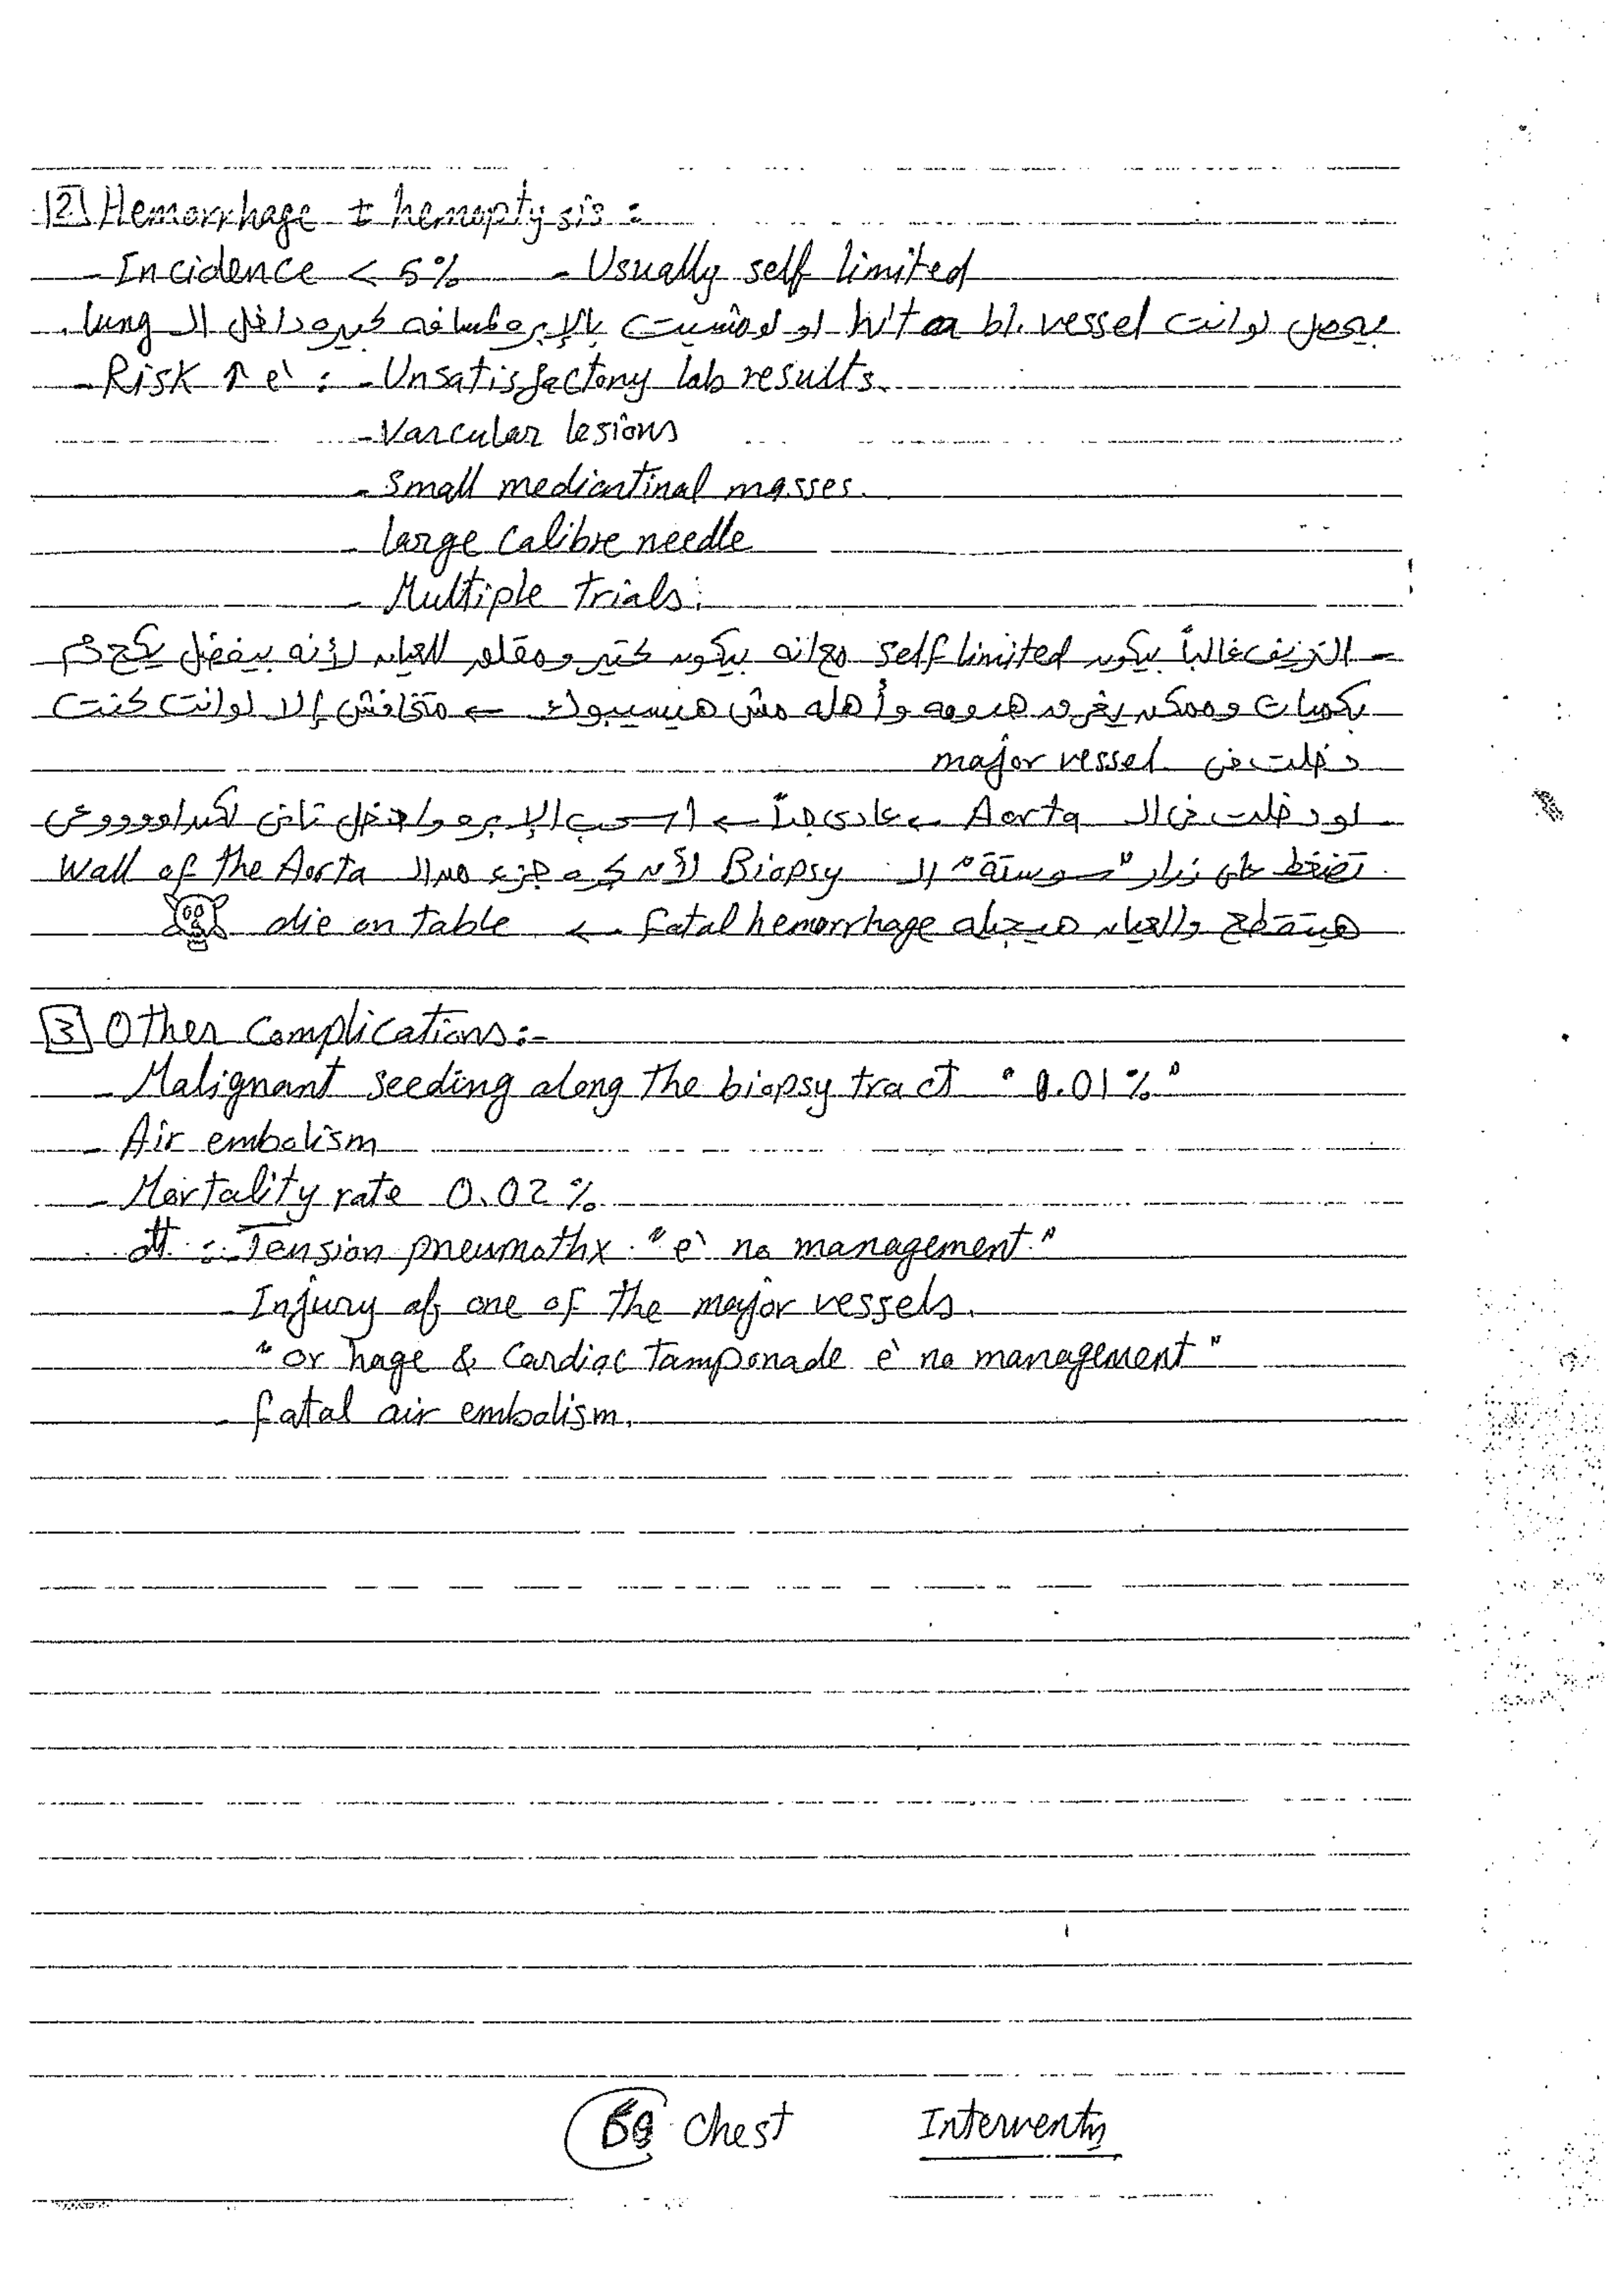 [2] Hemorrhage ± hemoptysis :
- Incidence < 5% - Usually self limited
بيحصل لو انت hit a bl. vessel او لو مشيت بالإبره لمسافه كبيره داخل الـ lung .
- Risk ↑ è : - Unsatisfactory lab results.
- Varcular lesions
- Small mediantinal masses.
- large calibre needle
- Multiple trials.
- النزيف غالباً بيكون self limited مع انه بيكون كتير ومقلق للعيان لأنه بيفضل يكح دم
بكميات وممكن يغرق هدومه وأهله مش هيسيبوك ← متخافش إلا لو انت كنت
دخلت في major vessel
- لو دخلت في الـ Aorta ← عادى جداً ← اسحب الإبره وادخل تانى لكن اوووووعى
تضغط على زرار "سوستة" الـ Biopsy لأن كده جزء من الـ Wall of the Aorta
هيتقطع والعيان هيجيله fatal hemorrhage ← die on table
[3] Other Complications:-
- Malignant seeding along the biopsy tract " 0.01 % "
- Air embolism
- Mortality rate 0.02 %
: - Tension pneumothx. " è no management."
- Injury of one of the major vessels.
" or hage & Cardiac Tamponade è no management "
- fatal air embolism.
Chest Interventn